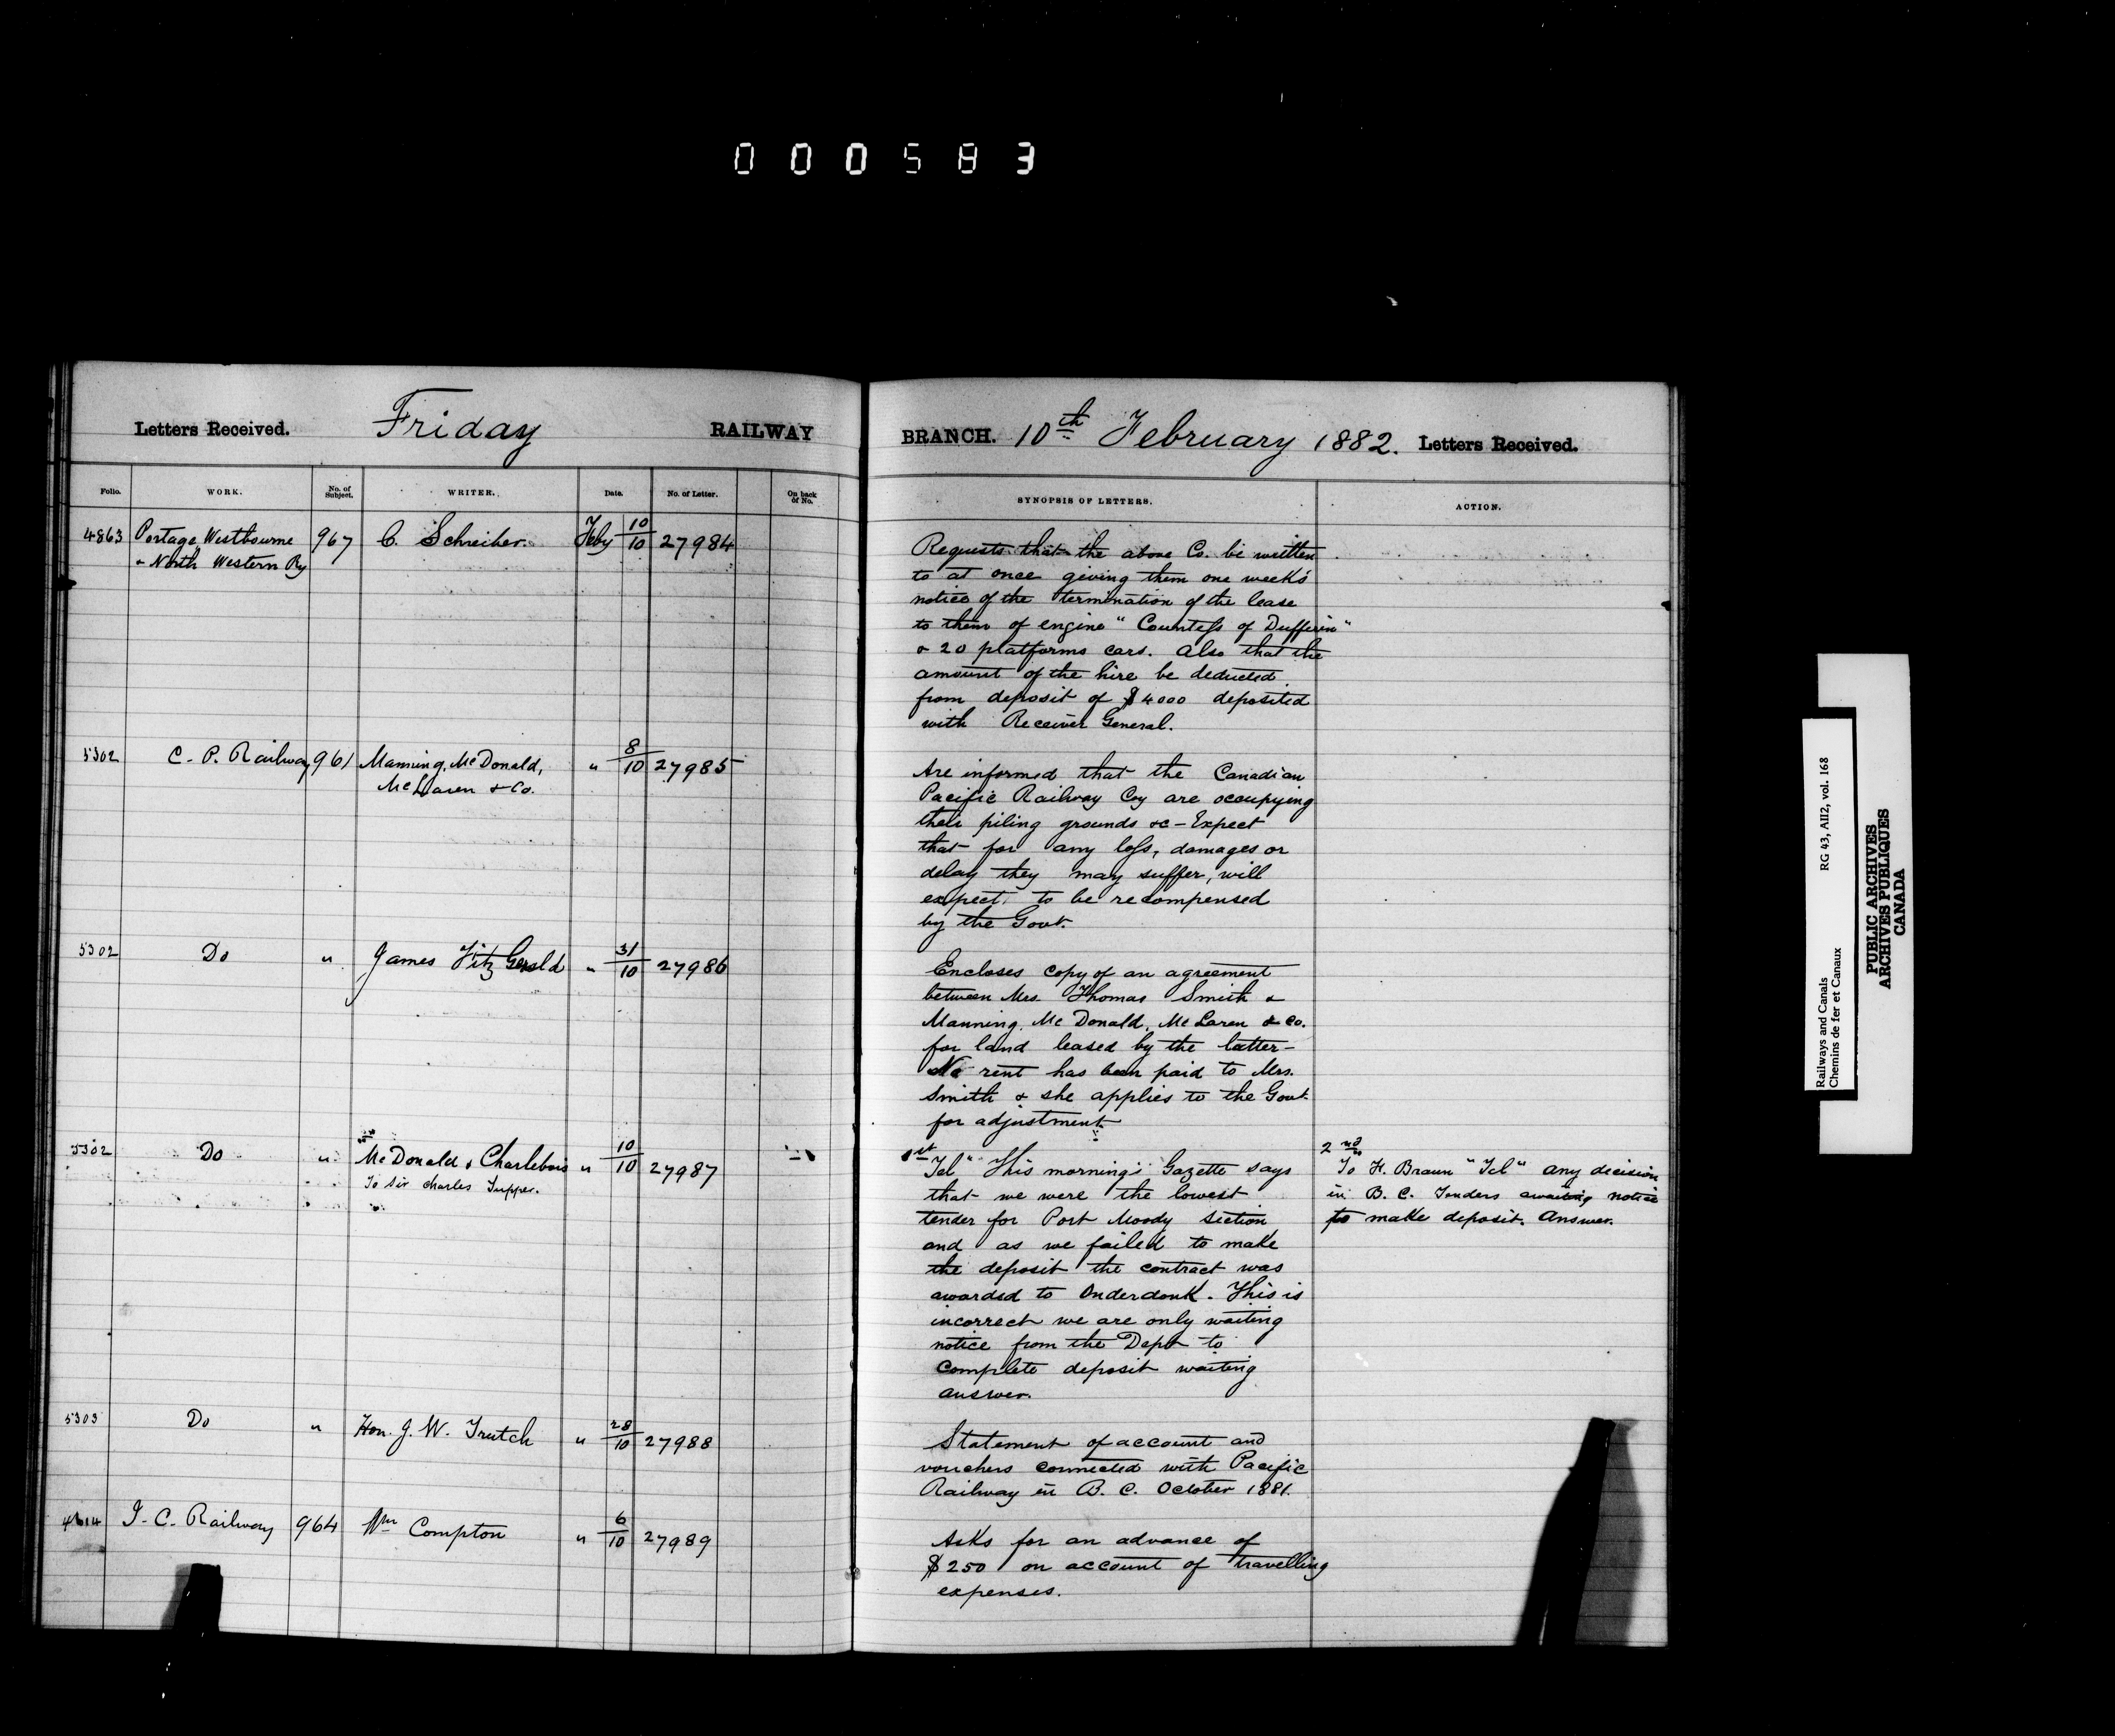 000583
Letters Received. Friday RAILWAY
BRANCH. 10th February 1882. Letters Received.
Folio. WORK. No. of Subject. WRITER. Date. No. of Letter. On back of No.
SYNOPSIS OF LETTERS. ACTION.
4863 Portage Westbourne 967 C. Schreiber. Feby 10/10 27984
& North Western Ry
Requests that the above Co. be written
to at once giving them one week's
notice of the termination of the lease
to them of engine "Countess of Dufferin"
& 20 platforms cars. Also that the
amount of the hire be deducted
from deposit of $4000 deposited
with Receiver General.
5302 C. P. Railway 961 Manning, McDonald, " 8/10 27985
McLaren & Co.
Are informed that the Canadian
Pacific Railway Coy are occupying
their piling grounds &c - Expect
that for any loss, damages or
delay they may suffer, will
expect to be recompensed
by the Govt.
5302 Do " James FitzGerald " 31/10 27986
Encloses copy of an agreement
between Mrs. Thomas Smith &
Manning, McDonald, McLaren & Co.
for land leased by the latter -
No rent has been paid to Mrs.
Smith & she applies to the Govt
for adjustment.
5302 Do " McDonald & Charlebois " 10/10 27987
To Sir Charles Tupper.
1st "Tel" This morning's Gazette says
that we were the lowest
tender for Port Moody section
and as we failed to make
the deposit the contract was
awarded to Onderdonk. This is
incorrect we are only waiting
notice from the Dept to
complete deposit waiting
answer.
2nd
To F. Braun "Tel" any decision
in B. C. Tenders awaiting notice
to make deposit. Answer.
5303 Do " Hon. J. W. Trutch " 28/10 27988
Statement of account and
vouchers connected with Pacific
Railway in B. C. October 1881.
4614 I. C. Railway 964 Wm Compton " 6/10 27989
Asks for an advance of
$250 on account of travelling
expenses.
Railways and Canals RG 43, AII2, vol. 168
Chemins de fer et Canaux
PUBLIC ARCHIVES
ARCHIVES PUBLIQUES
CANADA